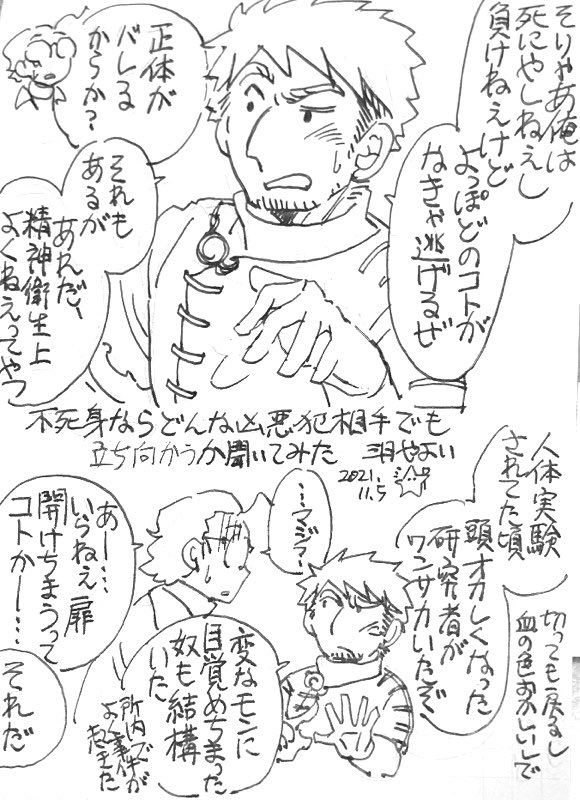 そりゃあ俺は
死にやしねえし
負けねえけど
よっぽどのコトが
なきゃ逃げるぜ
正体が
バレる
からか?
それも
あるが
あれだ、
精神衛生上
よくねえってやつ
不死身ならどんな凶悪犯相手でも
立ち向かうか聞いてみた
やよい
2021.
11.5
人体実験
されてた頃
頭オカしくなった
研究者が
ワンサカいたぞ
切っても戻るし
血の色おかしいしで
…マジァー
変なモンに
目覚めちまった
奴も結構
いた
所内で
よく事件が
起きた
あー……
いらねぇ扉
開けちまうって
コトかー…
それだ